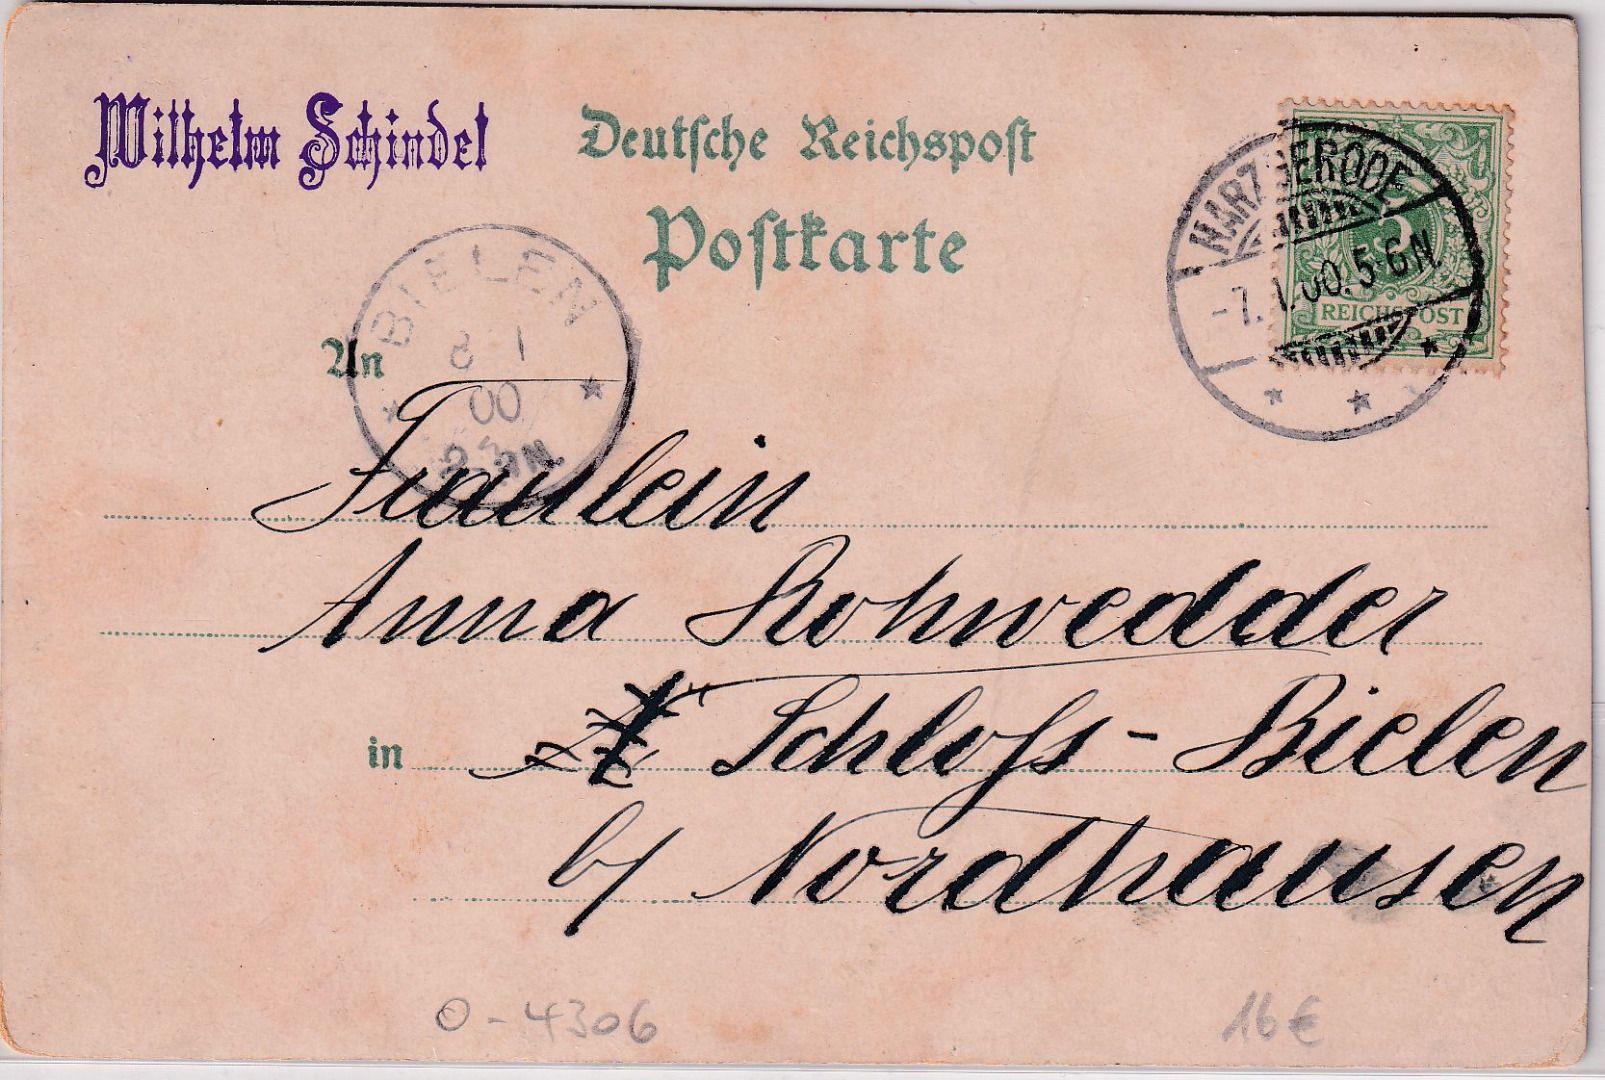 Wilhelm Schindel
Deutsche Reichspost
Postkarte
HARZGERODE
-7.1.00.5-6N.
5
REICHSPOST
BIELEN
8 1
00
N.
An
Fraulein
Anna Rohwedder
in Schloss-Bielen
b/ Nordhausen
O-4306
16€